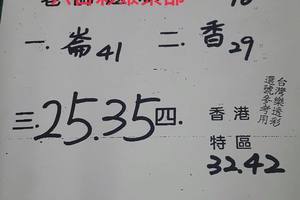 一.崙41 二.香29
三.25.35
四.香港
特區
32.42
台灣樂透彩
選號參考用